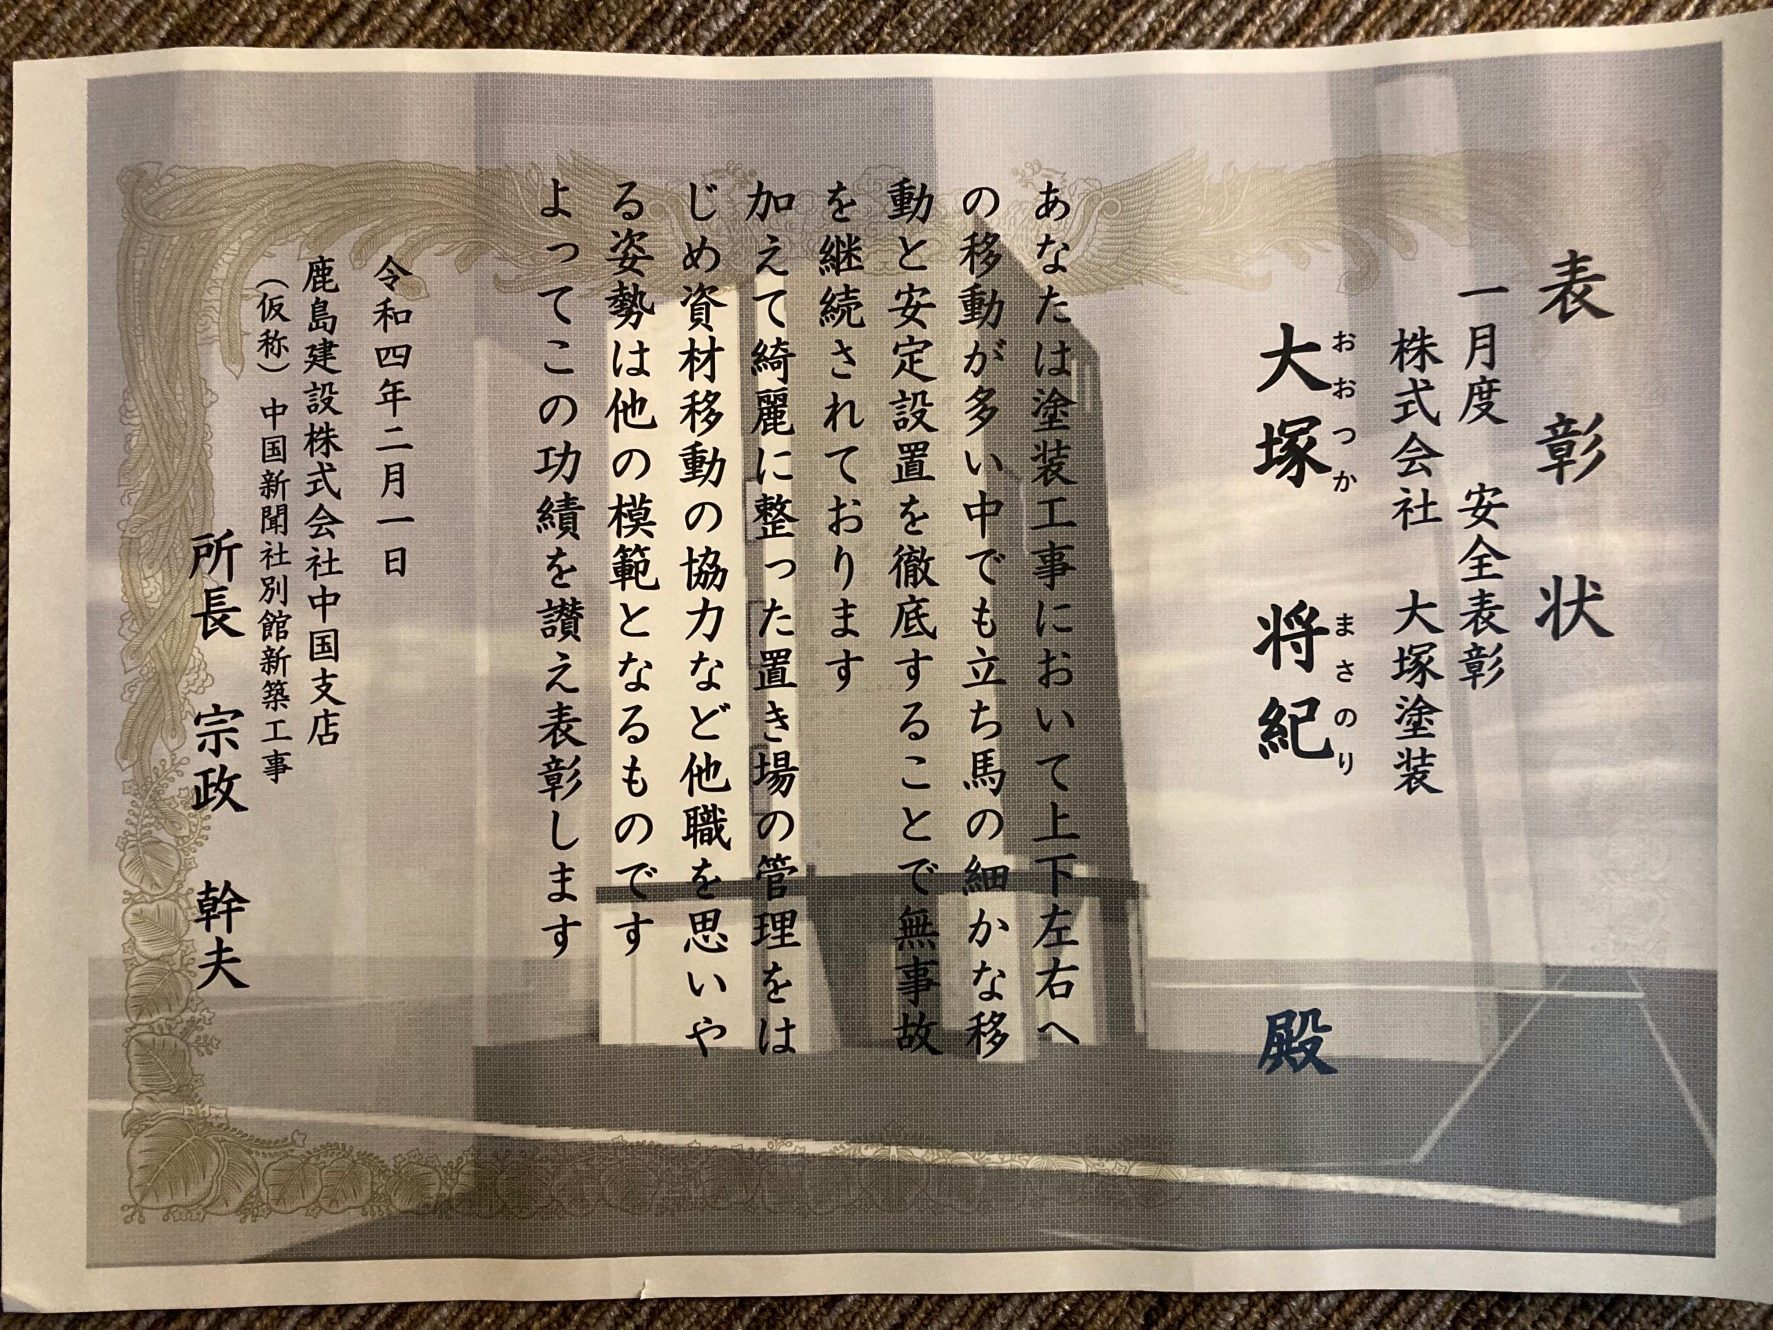 表彰状
一月度　安全表彰
株式会社　大塚塗装
おおつか　まさのり
大塚　将紀　殿
あなたは塗装工事において上下左右へ
の移動が多い中でも立ち馬の細かな移
動と安定設置を徹底することで無事故
を継続されております
加えて綺麗に整った置き場の管理をは
じめ資材移動の協力など他職を思いや
る姿勢は他の模範となるものです
よってこの功績を讃え表彰します
令和四年二月一日
鹿島建設株式会社中国支店
（仮称）中国新聞社別館新築工事
所長　宗政　幹夫